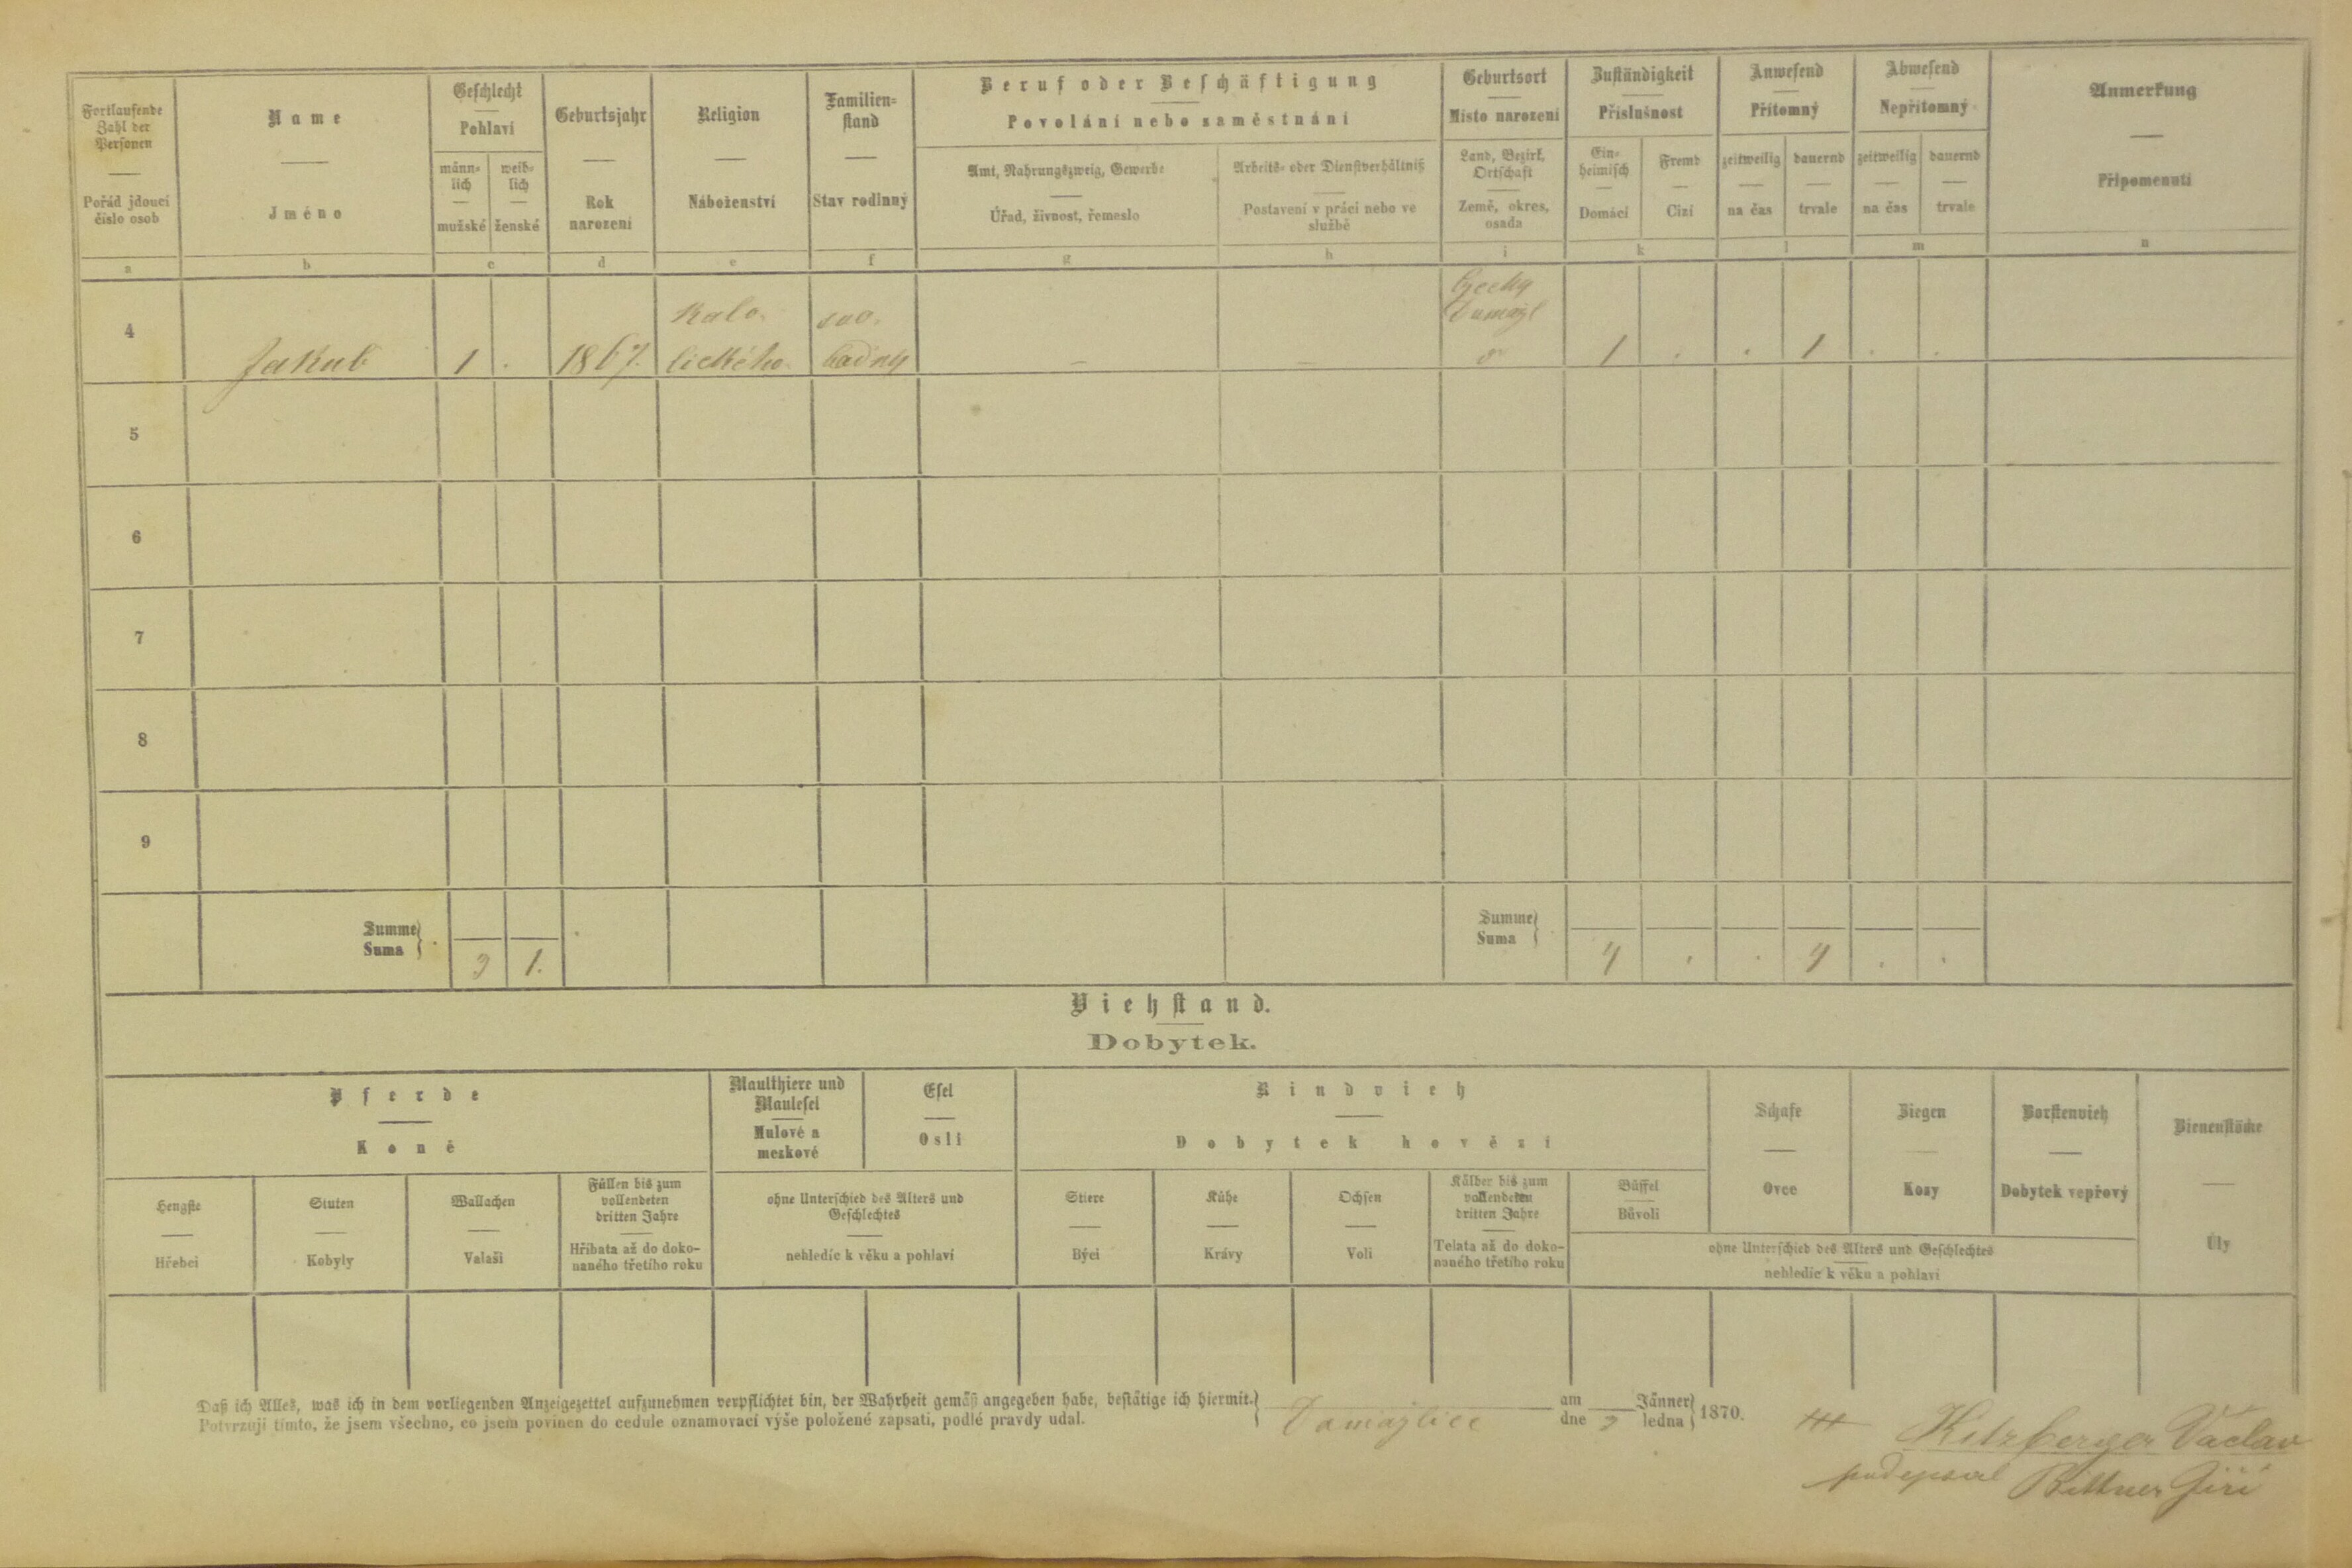 Fortlaufende Zahl der Personen
Pořád jdoucí číslo osob
Name
Jméno
Geschlecht
Pohlaví
männ-lich
mužské
weib-lich
ženské
Geburtsjahr
Rok narození
Religion
Náboženství
Familien-stand
Stav rodinný
Beruf oder Beschäftigung
Povolání nebo zaměstnání
Amt, Nahrungszweig, Gewerbe
Úřad, živnost, řemeslo
Arbeits- oder Dienstverhältniß
Postavení v práci nebo ve službě
Geburtsort
Místo narození
Land, Bezirk, Ortschaft
Země, okres, osada
Zuständigkeit
Příslušnost
Ein-heimisch
Domácí
Fremd
Cizí
Anwesend
Přítomný
zeitweilig
na čas
dauernd
trvale
Abwesend
Nepřítomný
zeitweilig
na čas
dauernd
trvale
Anmerkung
Připomenutí
a b c d e f g h i k l m n
4 Jakub 1 . 1867. kato. lického. svo. bodný – – Čechy Damajl 1 . . 1 . .
5
6
7
8
9
Summe
Suma
3 1.
Summe
Suma
4 . . 4 . .
Viehstand.
Dobytek.
Pferde
Koně
Hengste
Hřebci
Stuten
Kobyly
Wallachen
Valaši
Füllen bis zum vollendeten dritten Jahre
Hříbata až do doko-naného třetího roku
Maulthiere und Maulesel
Mulové a mezkové
Esel
Osli
ohne Unterschied des Alters und Geschlechtes
nehledíc k věku a pohlaví
Rindvieh
Dobytek hovězí
Stiere
Býci
Kühe
Krávy
Ochsen
Voli
Kälber bis zum vollendeten dritten Jahre
Telata až do doko-naného třetího roku
Büffel
Bůvoli
Schafe
Ovce
Ziegen
Kozy
Borstenvieh
Dobytek vepřový
ohne Unterschied des Alters und Geschlechtes
nehledíc k věku a pohlaví
Bienenstöcke
Úly
Daß ich Alles, was ich in dem vorliegenden Anzeigezettel aufzunehmen verpflichtet bin, der Wahrheit gemäß angegeben habe, bestätige ich hiermit.
Potvrzuji tímto, že jsem všechno, co jsem povinen do cedule oznamovací výše položené zapsati, podlé pravdy udal.
Damajlice
am
dne 3
Jänner
ledna
1870.
+++ Kitzberger Václav
podepsal Bittner Jiří